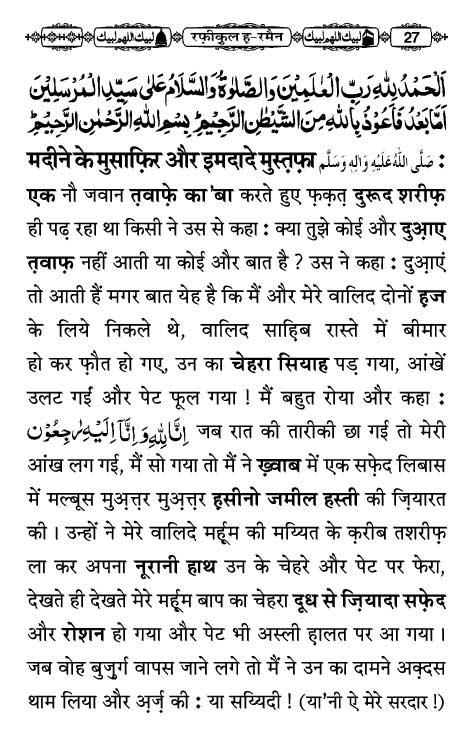 لبیك اللھم لبیك رफ़ीकुल ह-रमैन لبیك اللھم لبیك 27
اَلْحَمْدُ لِلّٰهِ رَبِّ الْعٰلَمِيْنَ وَالصَّلٰوةُ وَالسَّلَامُ عَلٰى سَيِّدِ الْمُرْسَلِيْنَ
اَمَّا بَعْدُ فَاَعُوْذُ بِاللّٰهِ مِنَ الشَّيْطٰنِ الرَّجِيْمِ ؕ بِسْمِ اللّٰهِ الرَّحْمٰنِ الرَّحِيْمِ ؕ
मदीने के मुसाफ़िर और इमदादे मुस्त़फ़ा صَلَّى اللّٰهُ عَلَيْهِ وَاٰلِهٖ وَسَلَّم :
एक नौ जवान त़वाफ़े का'बा करते हुए फ़क़त़ दुरूद शरीफ़
ही पढ़ रहा था किसी ने उस से कहा : क्या तुझे कोई और दुआ़ए
त़वाफ़ नहीं आती या कोई और बात है ? उस ने कहा : दुआ़एं
तो आती हैं मगर बात येह है कि मैं और मेरे वालिद दोनों ह़ज
के लिये निकले थे, वालिद साह़िब रास्ते में बीमार
हो कर फ़ौत हो गए, उन का चेहरा सियाह पड़ गया, आंखें
उलट गईं और पेट फूल गया ! मैं बहुत रोया और कहा :
اِنَّا لِلّٰهِ وَاِنَّآ اِلَيْهِ رٰجِعُوْن जब रात की तारीकी छा गई तो मेरी
आंख लग गई, मैं सो गया तो मैं ने ख़्वाब में एक सफ़ेद लिबास
में मल्बूस मुअ़त़्त़र मुअ़त़्त़र ह़सीनो जमील हस्ती की ज़ियारत
की । उन्हों ने मेरे वालिदे मर्हूम की मय्यित के क़रीब तशरीफ़
ला कर अपना नूरानी हाथ उन के चेहरे और पेट पर फेरा,
देखते ही देखते मेरे मर्हूम बाप का चेहरा दूध से ज़ियादा सफ़ेद
और रोशन हो गया और पेट भी अस्ली ह़ालत पर आ गया ।
जब वोह बुज़ुर्ग वापस जाने लगे तो मैं ने उन का दामने अक़्दस
थाम लिया और अ़र्ज़ की : या सय्यिदी ! (या'नी ऐ मेरे सरदार !)